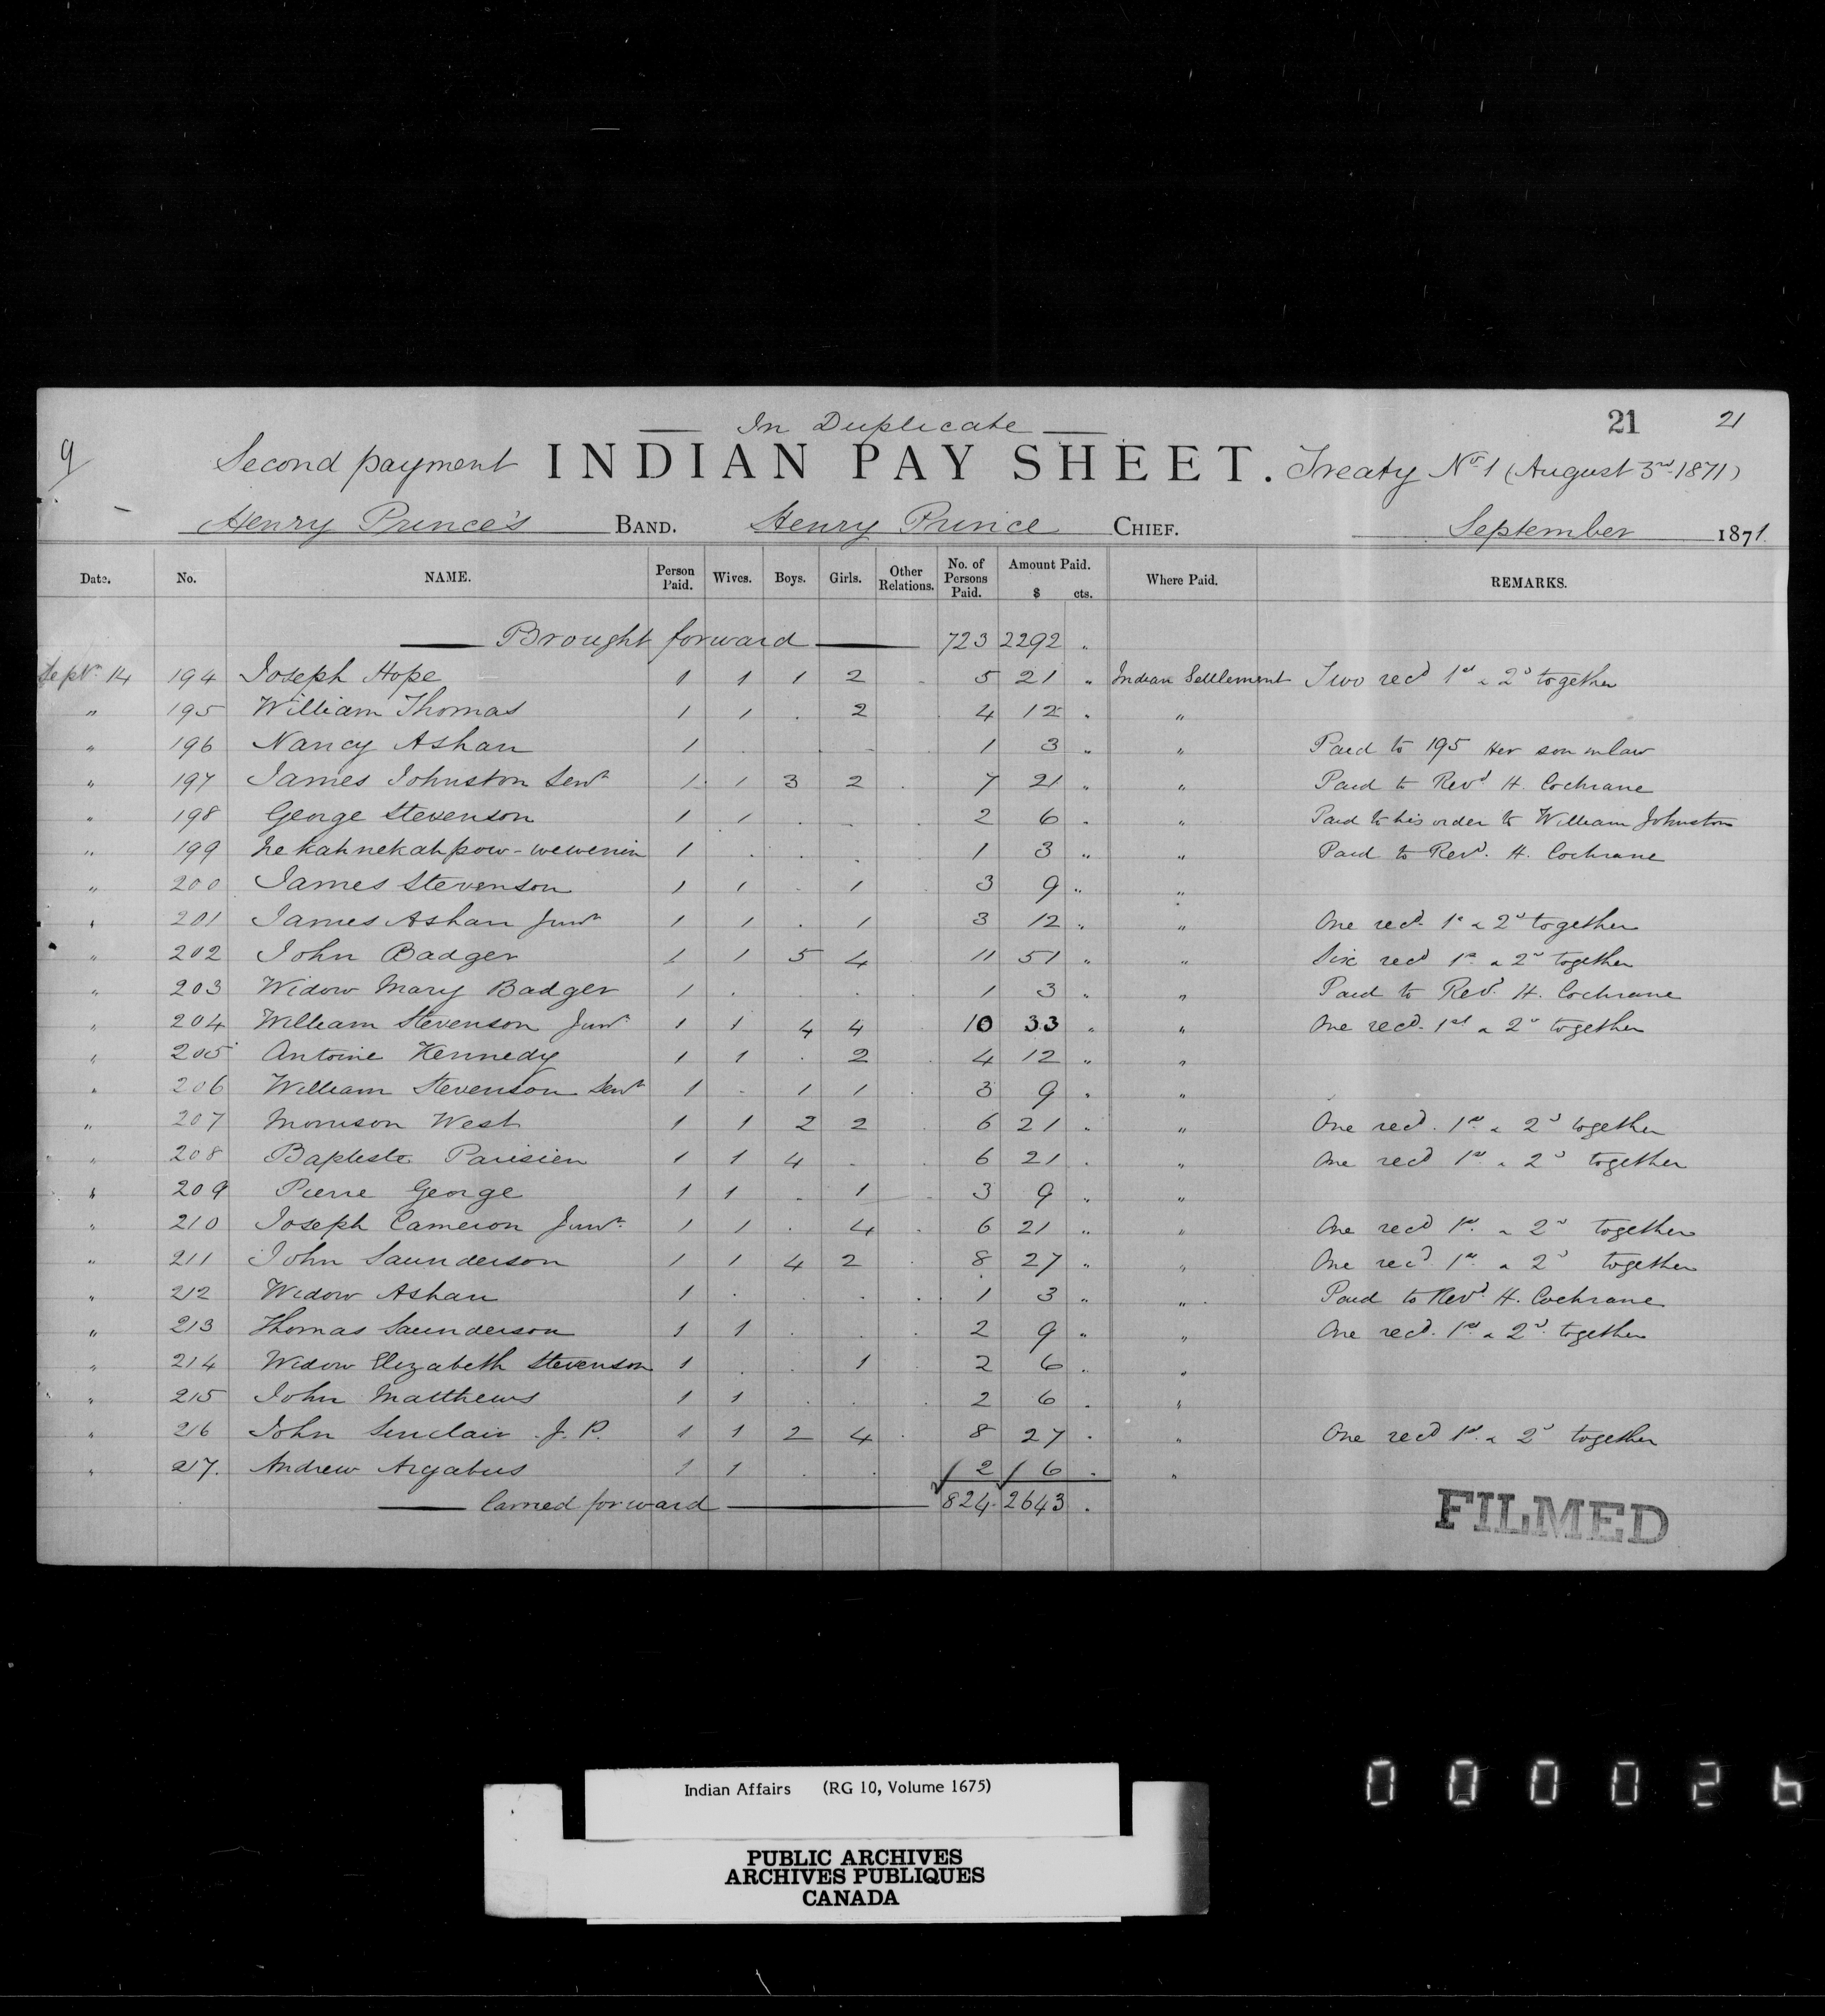 In Duplicate
21 21
9 Second payment INDIAN PAY SHEET. Treaty No. 1 (August 3rd 1871)
Henry Prince's BAND. Henry Prince CHIEF. September 1871.
Date. No. NAME. Person Paid. Wives. Boys. Girls. Other Relations. No. of Persons Paid. Amount Paid. $ cts. Where Paid. REMARKS.
Brought forward 723 2292 "
Septr. 14 194 Joseph Hope 1 1 1 2 . 5 21 " Indian Settlement Two recd 1st & 2d together
" 195 William Thomas 1 1 . 2 . 4 12 " "
" 196 Nancy Ashan 1 . . . . 1 3 " " Paid to 195 Her son inlaw
" 197 James Johnston Senr 1 1 3 2 . 7 21 " " Paid to Revd H. Cochrane
" 198 George Stevenson 1 1 . . . 2 6 " " Paid to his order to William Johnston
" 199 1 . . . . 1 3 " " Paid to Revd. H. Cochrane
" 200 James Stevenson 1 1 . 1 . 3 9 " "
" 201 James Ashan Junr 1 1 . 1 . 3 12 " " One recd. 1st & 2d together
" 202 John Badger 1 1 5 4 11 51 " " Six recd 1st & 2d together
" 203 Widow Mary Badger 1 . . . . 1 3 " " Paid to Revd. H. Cochrane
" 204 William Stevenson Junr. 1 1 4 4 10 33 " " One recd. 1st & 2d together
" 205 Antoine Kennedy 1 1 . 2 . 4 12 " "
" 206 William Stevenson Senr 1 . 1 1 . 3 9 " "
" 207 Morrison West 1 1 2 2 . 6 21 " " One recd. 1st & 2d together
" 208 Baptiste Parisien 1 1 4 . . 6 21 " " One recd 1st & 2d together
" 209 Pierre George 1 1 . 1 . 3 9 " "
" 210 Joseph Cameron Junr. 1 1 . 4 . 6 21 " " One recd 1st & 2d together
" 211 John Saunderson 1 1 4 2 . 8 27 " " One recd 1st & 2d together
" 212 Widow Ashan 1 . . . . 1 3 " " Paid to Revd. H. Cochrane
" 213 Thomas Saunderson 1 1 . . . 2 9 " " One recd. 1st & 2d. together
" 214 Widow Elizabeth Stevenson 1 . . 1 2 6 " "
" 215 John Matthews 1 1 . . . 2 6 " "
" 216 John Sinclair J. P. 1 1 2 4 . 8 27 " " One recd 1st. & 2d together
" 217. Andrew Argabus 1 1 . . 2 6 " "
Carried forward 824 2643 .
FILMED
Indian Affairs (RG 10, Volume 1675)
PUBLIC ARCHIVES
ARCHIVES PUBLIQUES
CANADA
000026